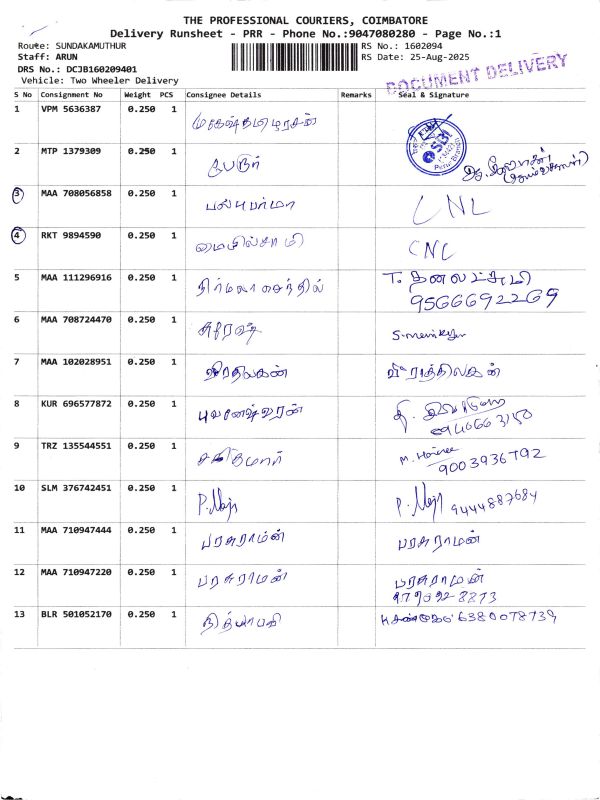 THE PROFESSIONAL COURIERS, COIMBATORE
Delivery Runsheet - PRR - Phone No.:9047080280 - Page No.:1
Route: SUNDAKAMUTHUR RS No.: 1602094
Staff: ARUN RS Date: 25-Aug-2025
DRS No.: DCJB160209401
Vehicle: Two Wheeler Delivery
DOCUMENT DELIVERY
S No Consignment No Weight PCS Consignee Details Remarks Seal & Signature
1 VPM 5636387 0.250 1
SBI
2 MTP 1379309 0.250 1
3 MAA 708056858 0.250 1 CNL
4 RKT 9894590 0.250 1 மையில்சாமி CNL
5 MAA 111296916 0.250 1 நிர்மலா செந்தில் T. தனலட்சுமி
9566692269
6 MAA 708724470 0.250 1
7 MAA 102028951 0.250 1 வீரதிலகன்
8 KUR 696577872 0.250 1 புவனேஷ்வரன்
9 TRZ 135544551 0.250 1 சசிகுமார்
9003936792
10 SLM 376742451 0.250 1 P. 9444887684
11 MAA 710947444 0.250 1 பரசுராமன் பரசுராமன்
12 MAA 710947220 0.250 1 பரசுராமன் பரசுராமன்
13 BLR 501052170 0.250 1 6380078739